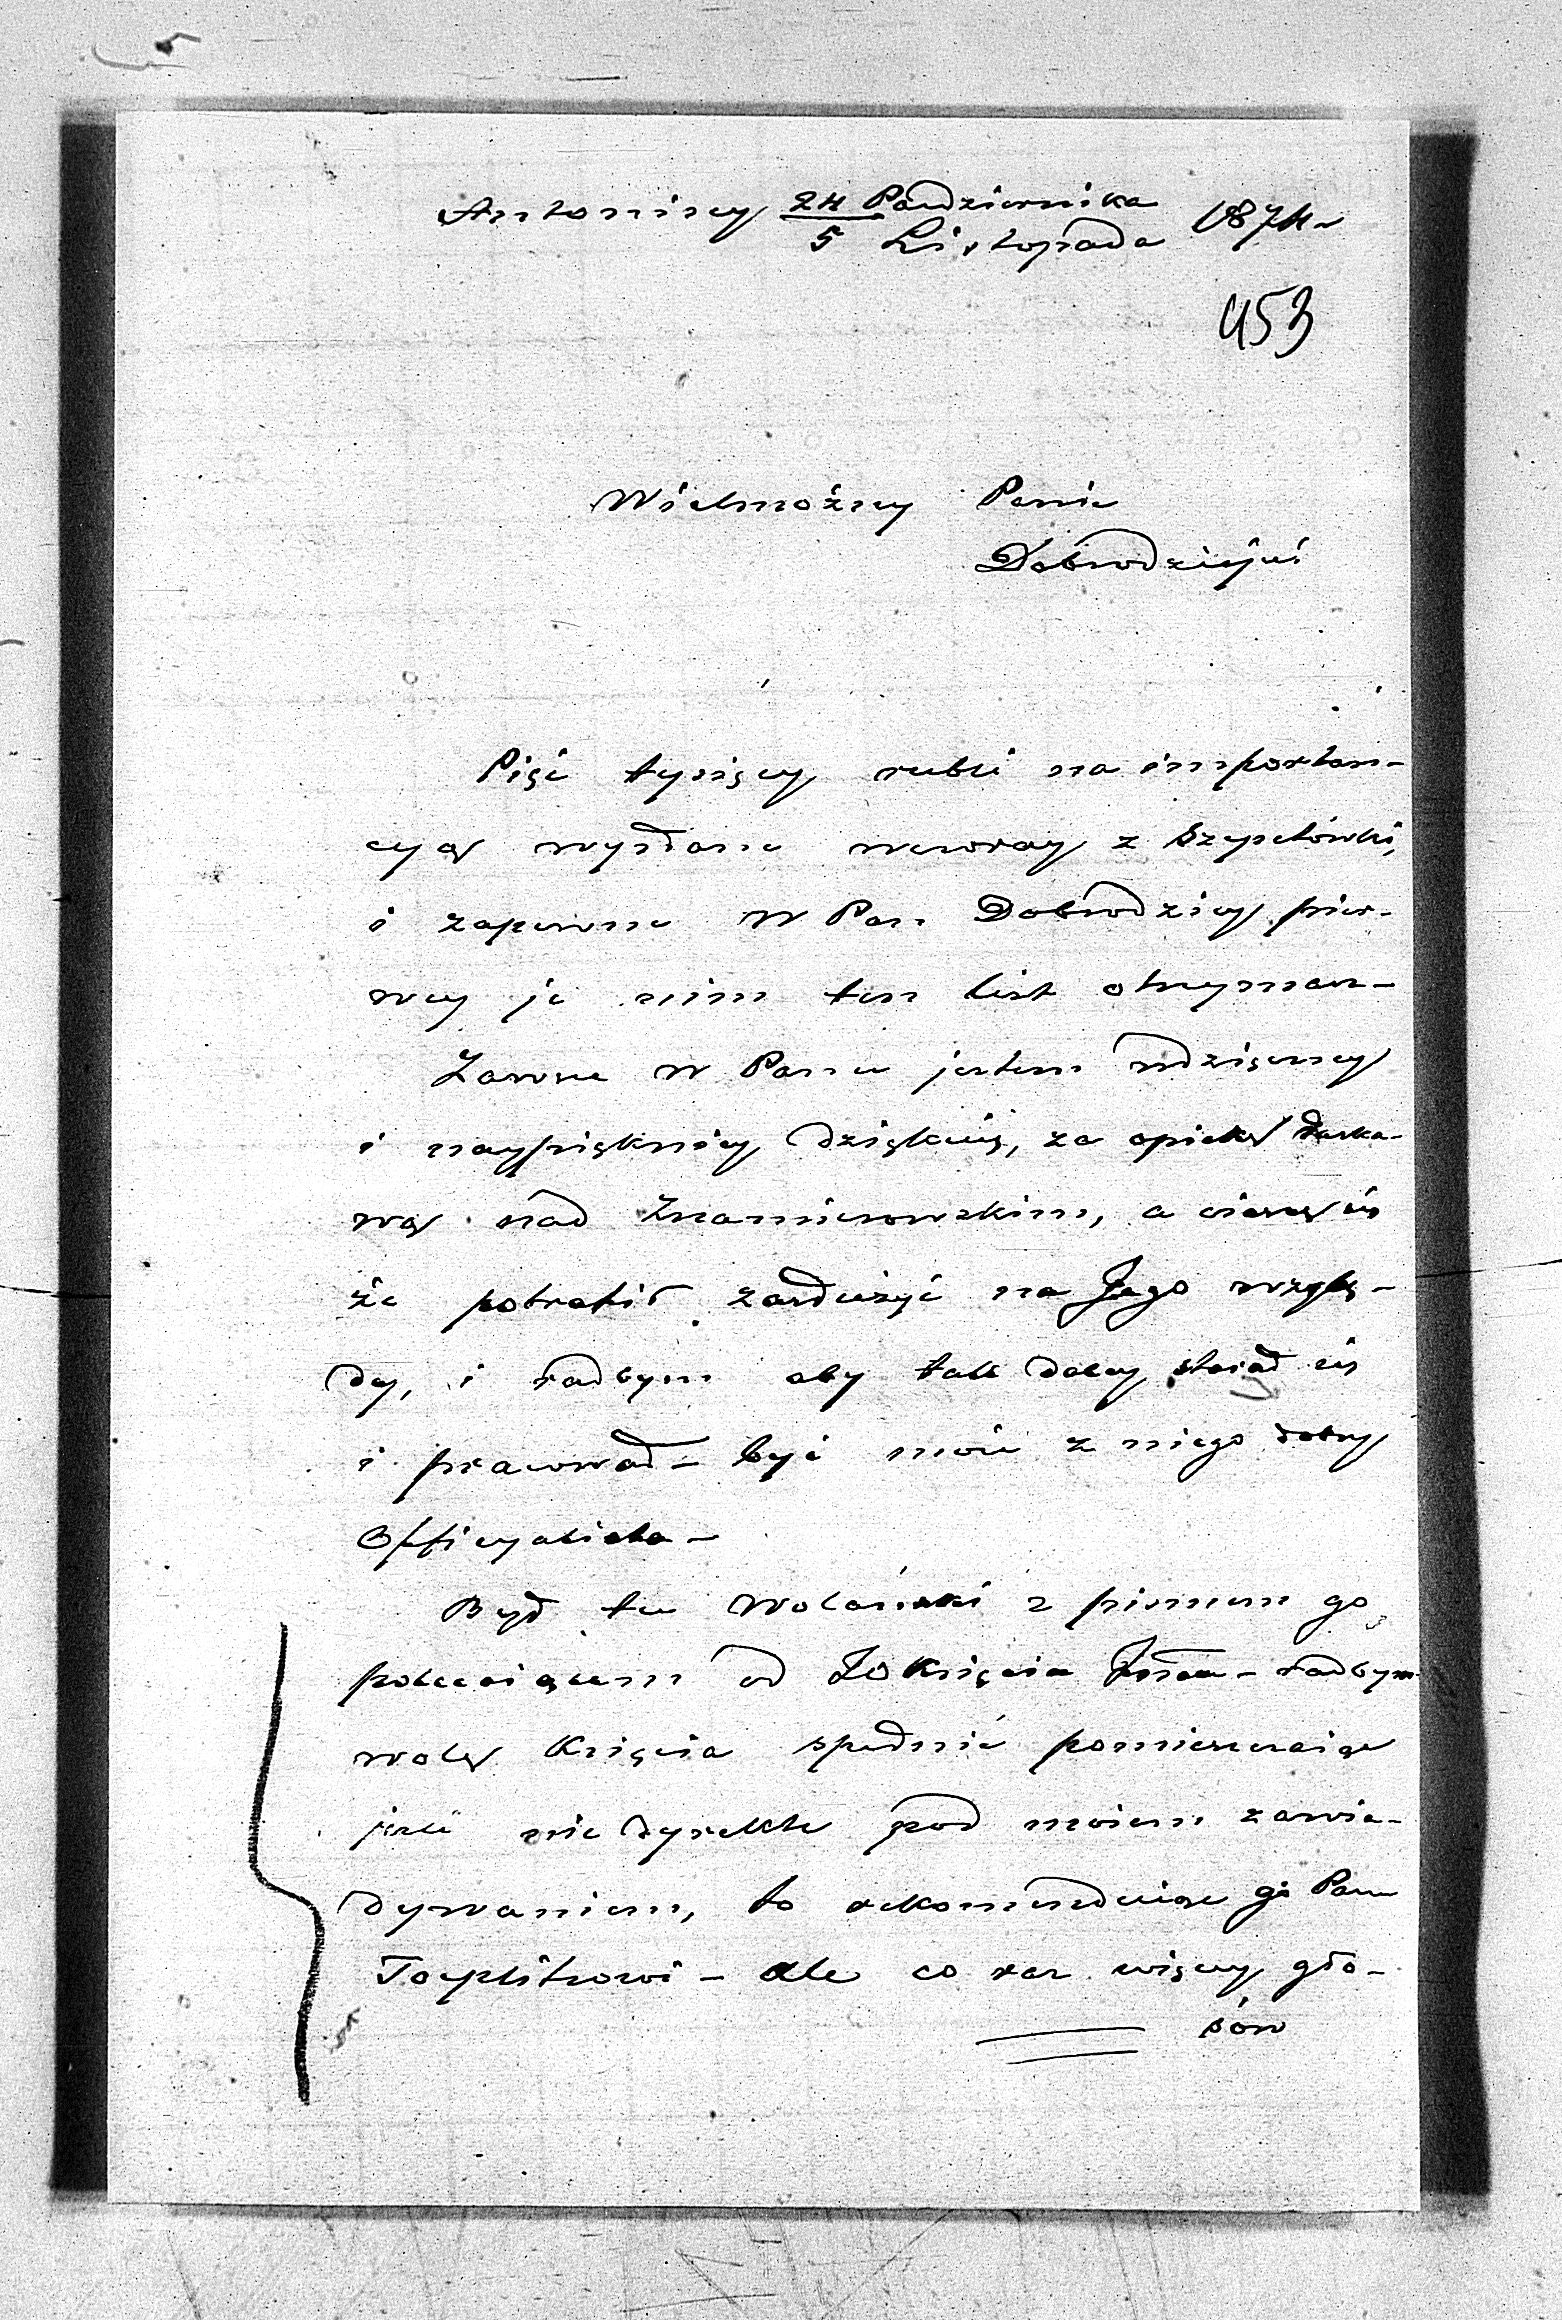 Antoniny 24 Pazdziernika 1874
5 Listopada
453
Wielmożny Panie
Dobrodzieju
Pięć tysięcy rubli na importan-
cyą wysłane wczoray z Szepetówki,
i zapewne W Pan Dobrodziey pier-
wey je nim ten list otrzymasz -
Zawsze W Panu jestem wdzięczny
i naypiękniey dziękuię, za opiekę łaska-
wą nad Znamierowskim, a cieszę się
że potrafił zasłużyć na Jego wzglę-
dy, i radbym aby tak daley starał się
i pracował - być może z niego dobry
Officyalista -
Był tu Wolański z pismem go
polecaiącem od JO Księcia Jana - radbym
wolę Księcia spełnić pomieszczaiąc
jeżli nie dyrekte pod moiem zawia-
dywaniem, to rekomenduiąc go Panu
Toeplitzowi - ale co raz więcey gło-
sów